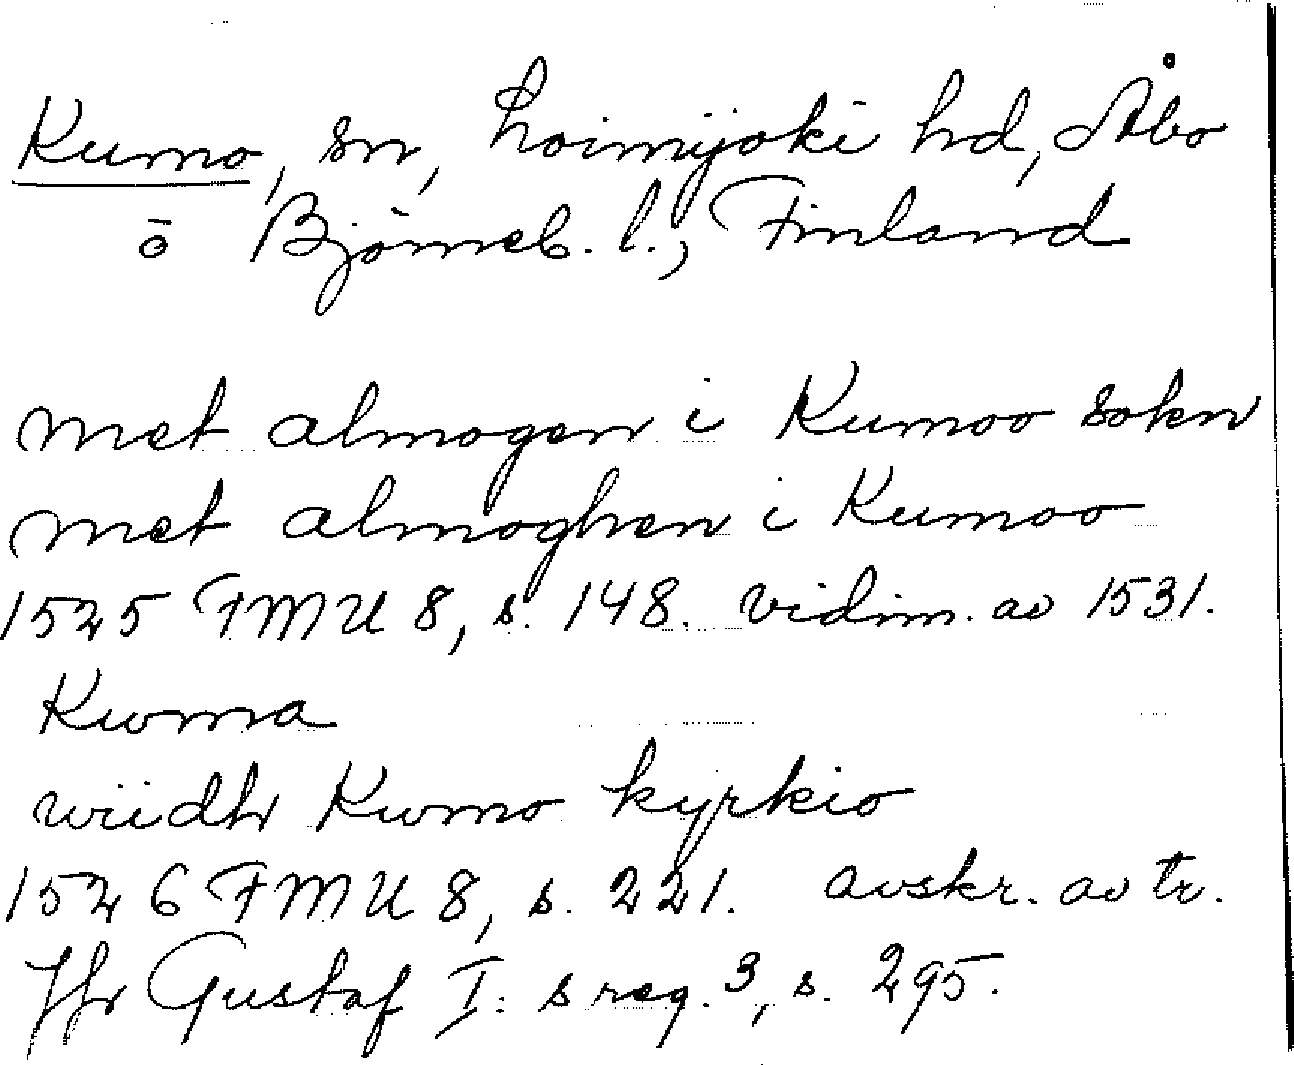 Kumo, sn, Loimijoki hd, Åbo
o Björneb. l., Finland
met almogen i Kumoo sokn
met almoghen i Kumoo
1525 FMU 8, s. 148. vidim. av 1531.
Kwma
wiidh Kwmo kyrkio
1526 FMU 8, s. 221. avskr. av tr.
Jfr Gustaf I:s reg. 3, s. 295.